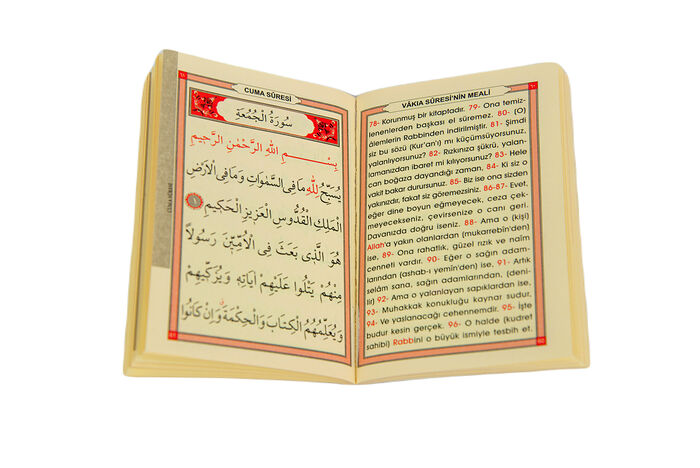 CUMA SÛRESİ
سُورَةُ الْجُمُعَةِ
بِسْمِ اللهِ الرَّحْمٰنِ الرَّحِيمِ
يُسَبِّحُ لِلّٰهِ مَا فِي السَّمٰوَاتِ وَمَا فِي الْاَرْضِ
الْمَلِكِ الْقُدُّوسِ الْعَزِيزِ الْحَكِيمِ ١
هُوَ الَّذِي بَعَثَ فِي الْاُمِّيّ۪نَ رَسُولاً
مِنْهُمْ يَتْلُوا عَلَيْهِمْ اٰيَاتِهِ وَيُزَكِّيهِمْ
وَيُعَلِّمُهُمُ الْكِتَابَ وَالْحِكْمَةَ وَاِنْ كَانُوا
VÂKIA SÛRESİ'NİN MEALİ
78- Korunmuş bir kitaptadır. 79- Ona temiz-
lenenlerden başkası el süremez. 80- (O)
âlemlerin Rabbinden indirilmiştir. 81- Şimdi
siz bu sözü (Kur'an'ı) mı küçümsüyorsunuz,
yalanlıyorsunuz? 82- Rızkınıza şükrü, yalan-
lamanızdan ibaret mi kılıyorsunuz? 83- Hele
can boğaza dayandığı zaman, 84- Ki siz o
vakit bakar durursunuz. 85- Biz ise ona sizden
yakınızdır, fakat siz göremezsiniz. 86-87- Evet,
eğer dine boyun eğmeyecek, ceza çek-
meyecekseniz, çevirsenize o canı geri.
Davanızda doğru iseniz. 88- Ama o (kişi)
Allah'a yakın olanlardan (mukarrebîn'den)
ise, 89- Ona rahatlık, güzel rızık ve naîm
cenneti vardır. 90- Eğer o sağın adam-
larından (ashab-ı yemîn'den) ise, 91- Artık
selâm sana, sağın adamlarından, (deni-
lir) 92- Ama o yalanlayan sapıklardan ise,
93- Muhakkak konukluğu kaynar sudur.
94- Ve yaslanacağı cehennemdir. 95- İşte
budur kesin gerçek. 96- O halde (kudret
sahibi) Rabbini o büyük ismiyle tesbih et.
60